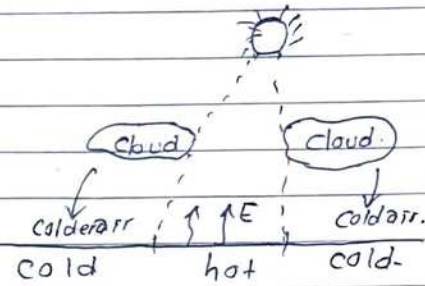 cloud cloud.
E
colderair coldair.
cold hot cold-